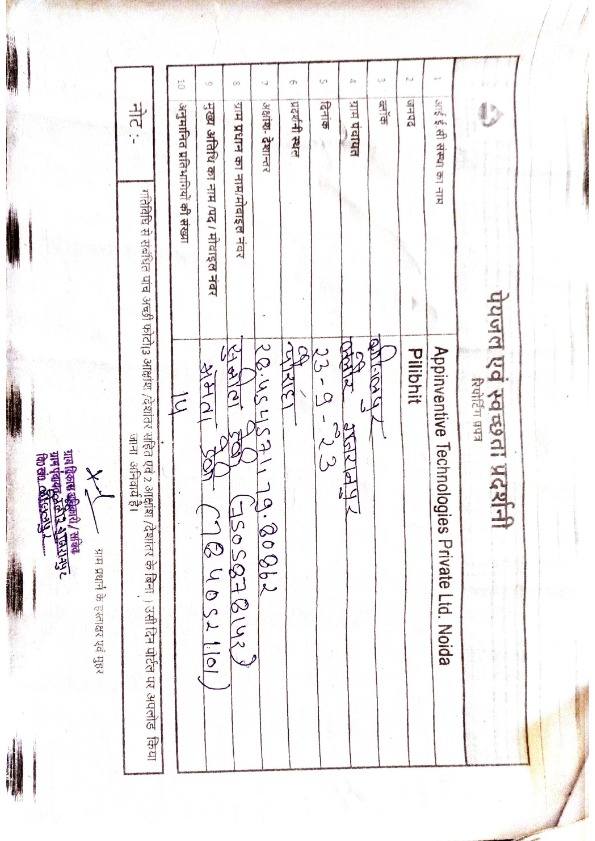 पेयजल एवं स्वच्छता प्रदर्शनी
रिपोर्टिंग प्रपत्र
1 आई ई सी संस्था का नाम Appinventive Technologies Private Ltd. Noida
2 जनपद Pilibhit
3 ब्लॉक बीसलपुर
4 ग्राम पंचायत
5 दिनांक 23-9-23
6 प्रदर्शनी स्थल चौराहा
7 अक्षांश-देशान्तर
8 ग्राम प्रधान का नाम/मोबाइल नंबर सुनीता देवी
9 मुख्य अतिथि का नाम /पद / मोबाइल नंबर ममता देवी
10 अनुमानित प्रतिभागियों की संख्या
नोट :-
गतिविधि से संबंधित पांच अच्छी फोटो(3 अक्षांश /देशांतर सहित एवं 2 अक्षांश /देशांतर के बिना ) उसी दिन पोर्टल पर अपलोड किया
जाना अनिवार्य है।
ग्राम प्रधान के हस्ताक्षर एवं मुहर
ग्राम विकास अधिकारी/ सचिव
ग्राम पंचायत
वि0ख0 बीसलपुर